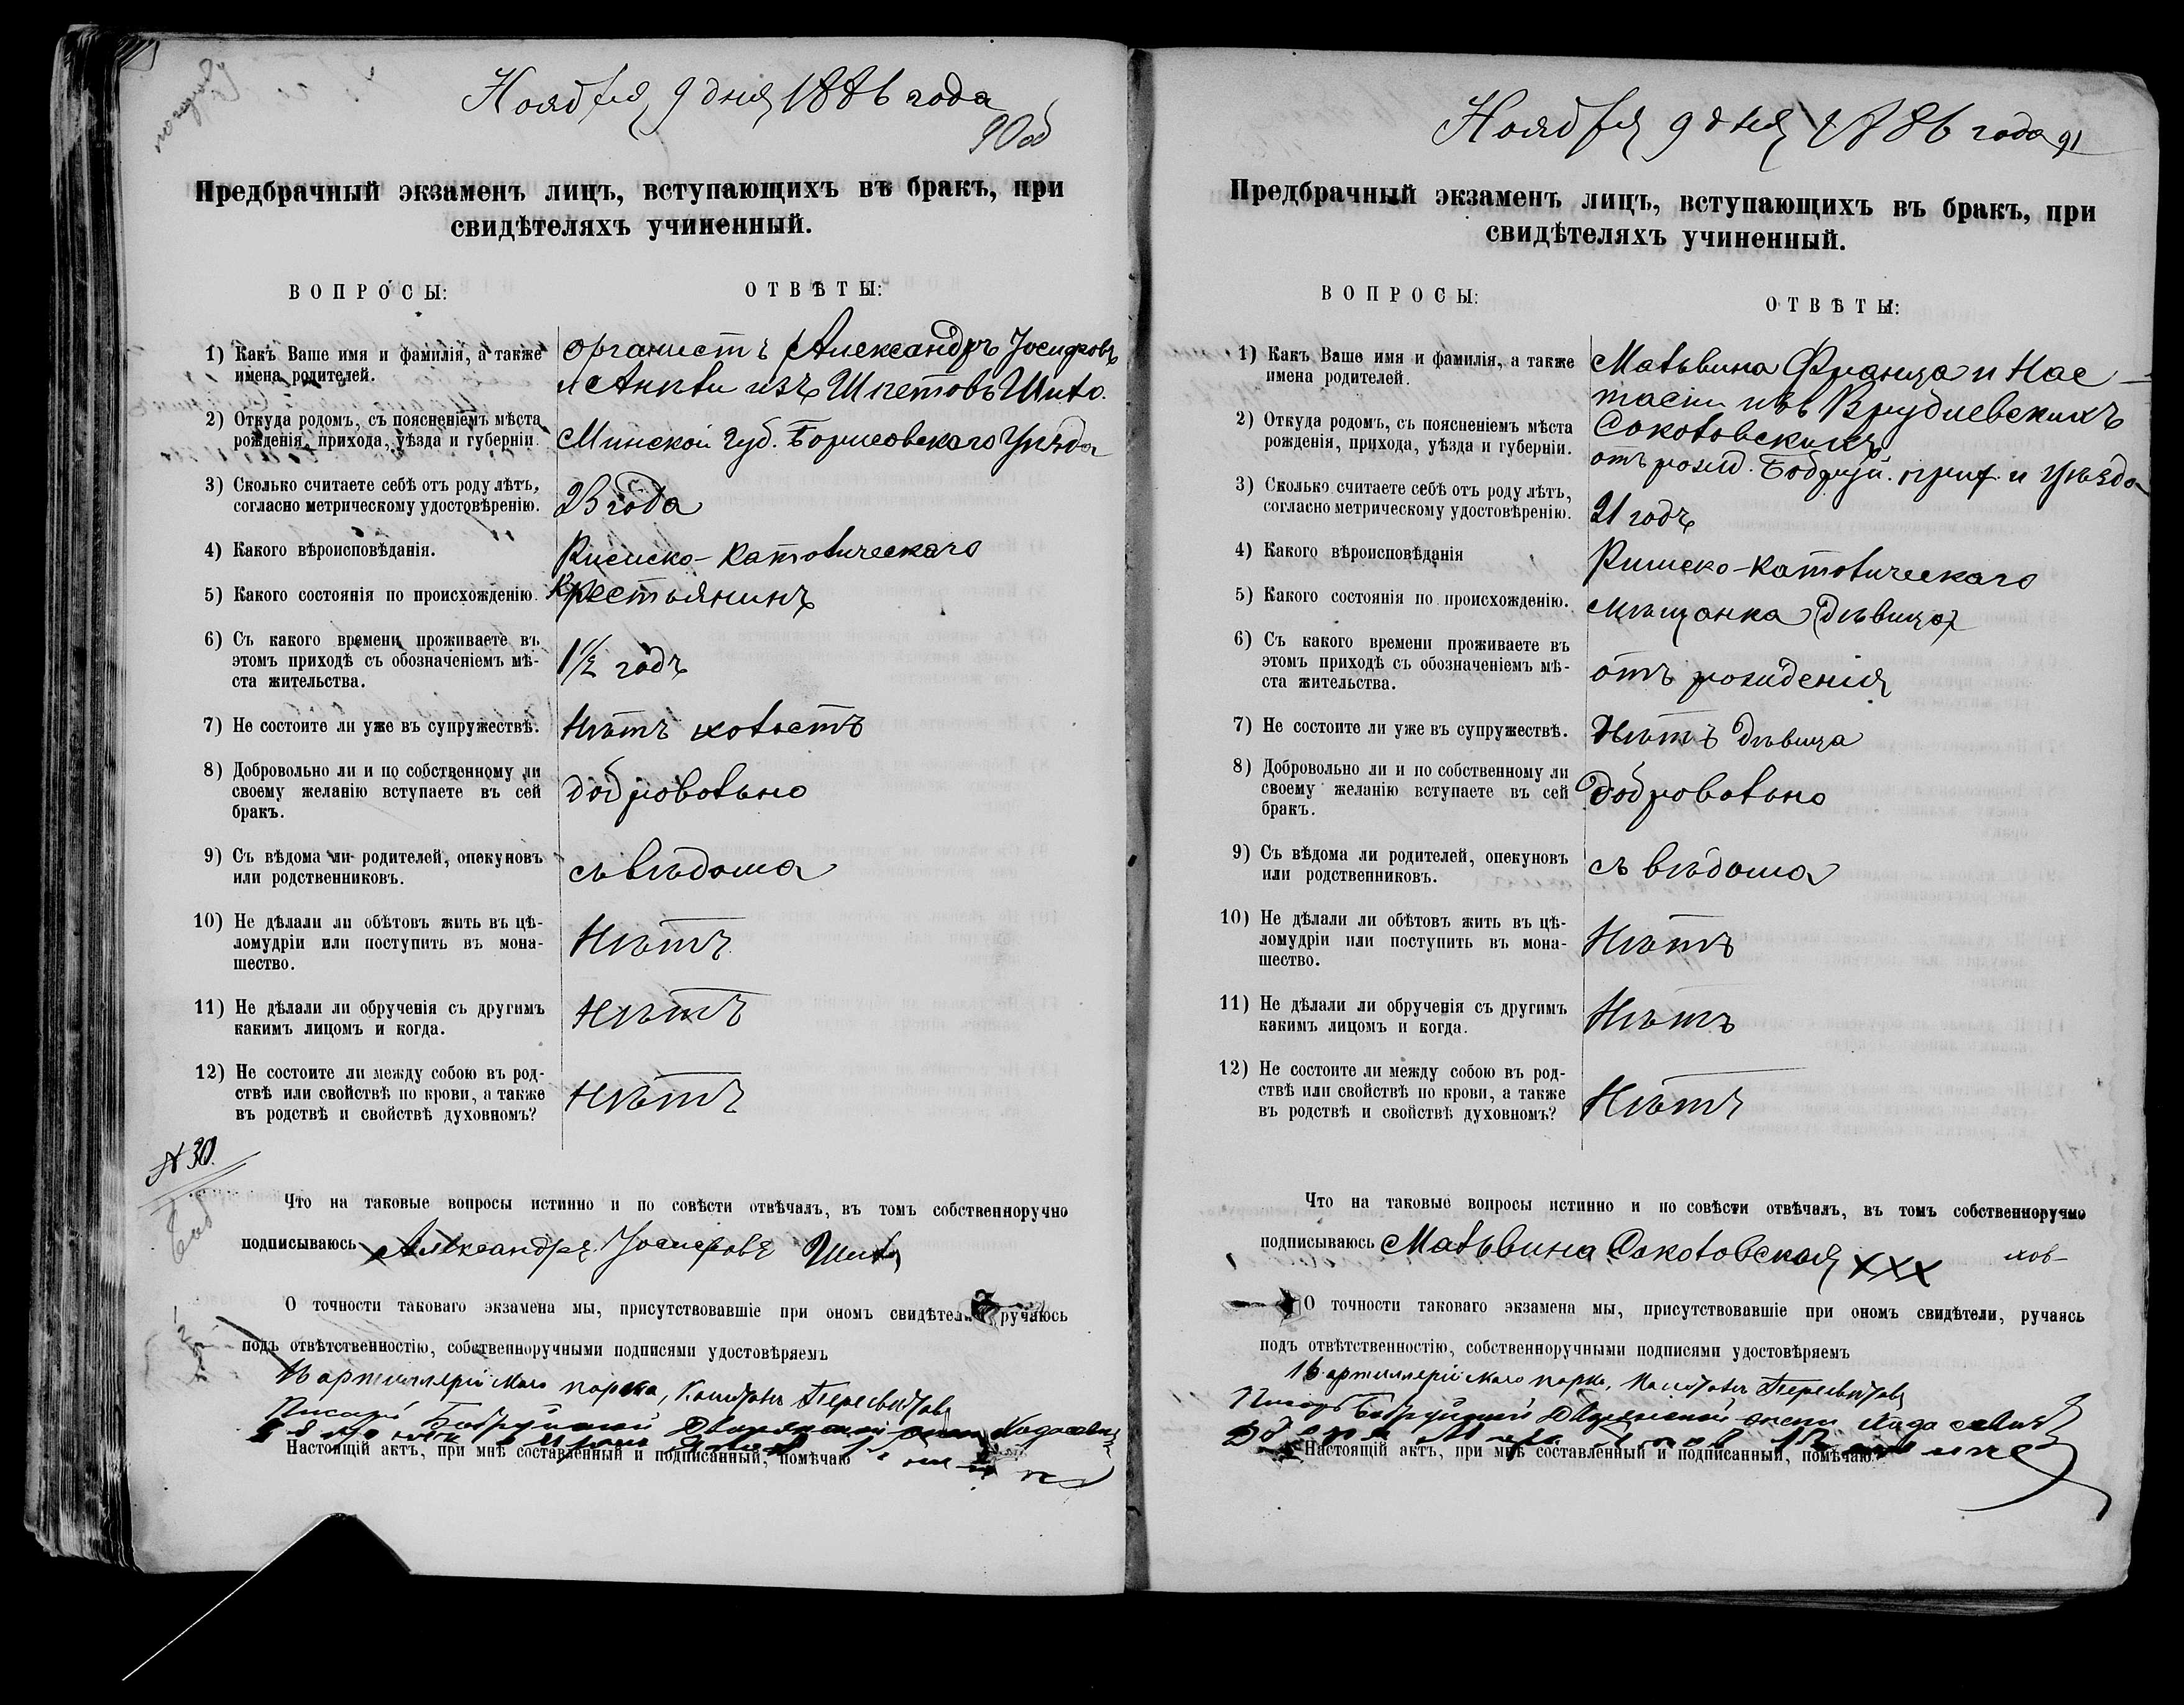 Ноября 9 дня 1886 года
90об
Предбрачный экзаменъ лицъ, вступающихъ въ бракъ, при
свидѣтеляхъ учиненный.
ВОПРОСЫ:
ОТВѢТЫ:
1) Какъ Ваше имя и фамилія, а также
имена родителей.
органистъ Александръ Іосифовъ
и Анны изъ
2) Откуда родомъ, съ поясненіемъ мѣста
рожденія, прихода, уѣзда и губерніи.
Минской губ. Борисовскаго Уѣзда
3) Сколько считаете себѣ отъ роду лѣтъ,
согласно метрическому удостовѣренію.
23 года
4) Какого вѣроисповѣданія.
Римско-католическаго
5) Какого состоянія по происхожденію.
Крестьянинъ
6) Съ какого времени проживаете въ
этомъ приходѣ съ обозначеніемъ мѣ-
ста жительства.
1 1/2 годъ
7) Не состоите ли уже въ супружествѣ.
Нѣтъ холостъ
8) Добровольно ли и по собственному ли
своему желанію вступаете въ сей
бракъ.
добровольно
9) Съ вѣдома ли родителей, опекуновъ
или родственниковъ.
съ вѣдома
10) Не дѣлали ли обѣтовъ жить въ цѣ-
ломудріи или поступить въ мона-
шество.
Нѣтъ
11) Не дѣлали ли обрученія съ другимъ
какимъ лицомъ и когда.
Нѣтъ
12) Не состоите ли между собою въ род-
ствѣ или свойствѣ по крови, а также
въ родствѣ и свойствѣ духовномъ?
Нѣтъ
№ 30.
Что на таковые вопросы истинно и по совѣсти отвѣчалъ, въ томъ собственноручно
подписываюсь Александръ Іосифовъ
О точности таковаго экзамена мы, присутствовавшіе при ономъ свидѣтели, ручаюсь
подъ отвѣтственностію, собственноручными подписями удостовѣряемъ
16 артиллерійскаго парка,
Писарь Бобруйской Дворянской
Настоящій актъ, при мнѣ составленный и подписанный, помѣчаю
Ноября 9 дня 1886 года 91
Предбрачный экзаменъ лицъ, вступающихъ въ бракъ, при
свидѣтеляхъ учиненный.
ВОПРОСЫ:
ОТВѢТЫ:
1) Какъ Ваше имя и фамилія, а также
имена родителей.
Мальвина Франца и Нас-
тасіи изъ Врублевскихъ
Соколовскихъ
2) Откуда родомъ, съ поясненіемъ мѣста
рожденія, прихода, уѣзда и губерніи.
отъ рожд. Бобруй. прих. и Уѣзда
3) Сколько считаете себѣ отъ роду лѣтъ,
согласно метрическому удостовѣренію.
21 годъ
4) Какого вѣроисповѣданія
Римско-католическаго
5) Какого состоянія по происхожденію.
мѣщанка (дѣвица)
6) Съ какого времени проживаете въ
этомъ приходѣ съ обозначеніемъ мѣ-
ста жительства.
отъ рожденія
7) Не состоите ли уже въ супружествѣ.
Нѣтъ дѣвица
8) Добровольно ли и по собственному ли
своему желанію вступаете въ сей
бракъ.
Добровольно
9) Съ вѣдома ли родителей, опекуновъ
или родственниковъ.
съ вѣдома
10) Не дѣлали ли обѣтовъ жить въ цѣ-
ломудріи или поступить въ мона-
шество.
Нѣтъ
11) Не дѣлали ли обрученія съ другимъ
какимъ лицомъ и когда.
Нѣтъ
12) Не состоите ли между собою въ род-
ствѣ или свойствѣ по крови, а также
въ родствѣ и свойствѣ духовномъ?
Нѣтъ
Что на таковые вопросы истинно и по совѣсти отвѣчалъ, въ томъ собственноручно
подписываюсь Мальвина Соколовская XXX
О точности таковаго экзамена мы, присутствовавшіе при ономъ свидѣтели, ручаясь
подъ отвѣтственностію, собственноручными подписями удостовѣряемъ
16 артиллерійскаго парка,
Писарь Бобруйской Дворянской
Настоящій актъ, при мнѣ составленный и подписанный, помѣчаю